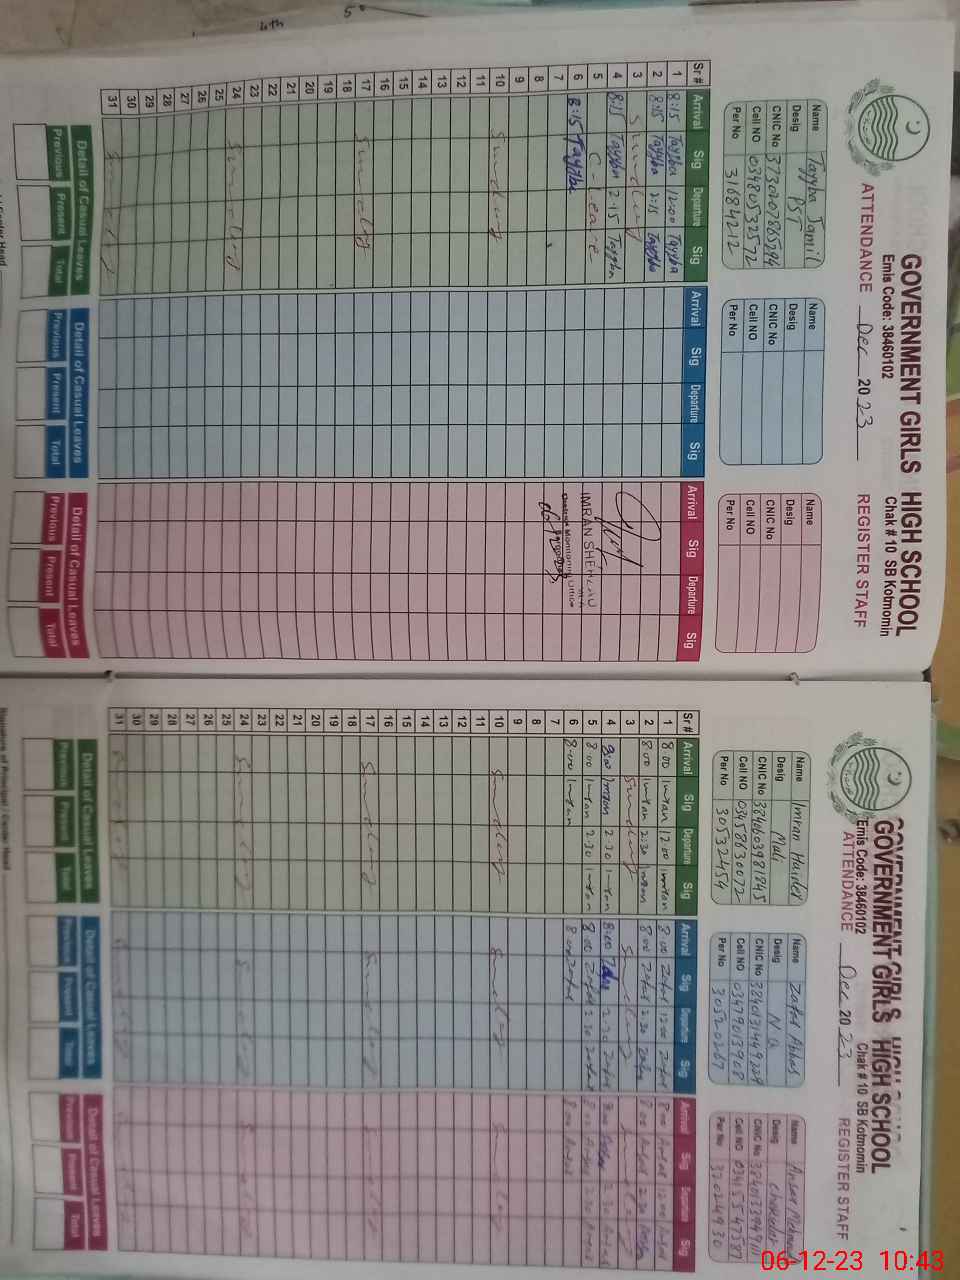 GOVERNMENT GIRLS HIGH SCHOOL
Emis Code: 38460102 Chak # 10 SB Kotmomin
ATTENDANCE Dec 2023 REGISTER STAFF
Name Tayyba Jamil
Desig PST
CNIC No
Cell NO 03480532572
Per No 31684212
Name
Desig
CNIC No
Cell NO
Per No
Name
Desig
CNIC No
Cell NO
Per No
Sr # Arrival Sig Departure Sig Arrival Sig Departure Sig Arrival Sig Departure Sig
1 8:15 Tayyba 12:00 Tayyba
2 8:15 Tayyba 2:15 Tayyba
3 Sunday
4 8:15 Tayyba 2:15 Tayyba
5 C-Leave
6 8:15 Tayyba
7
8
9
10 Sunday
11
12
13
14
15
16
17 Sunday
18
19
20
21
22
23
24 Sunday
25
26
27
28
29
30
31 Sunday
IMRAN SHEHZAD
Detail of Casual Leaves Detail of Casual Leaves Detail of Casual Leaves
Previous Present Total Previous Present Total Previous Present Total
GOVERNMENT GIRLS HIGH SCHOOL
Emis Code: 38460102 Chak # 10 SB Kotmomin
ATTENDANCE Dec 2023 REGISTER STAFF
Name Imran Haider
Desig Mali
CNIC No 3840603981845
Cell NO 03458630072
Per No 30532454
Name Zafar Abbas
Desig N.Q
CNIC No
Cell NO 03479013908
Per No 30520267
Name Ansar Mehmood
Desig Chowkidar
CNIC No
Cell NO 03415547587
Per No 32024930
Sr # Arrival Sig Departure Sig Arrival Sig Departure Sig Arrival Sig Departure Sig
1 8:00 Imran 12:00 Imran 8:00 Zafar 12:00 Zafar 8:00 Ansar 12:00 Ansar
2 8:00 Imran 2:30 Imran 8:00 Zafar 2:30 Zafar 8:00 Ansar 2:30 Ansar
3 Sunday Sunday Sunday
4 8:00 Imran 2:30 Imran 8:00 Zafar 2:30 Zafar 8:00 Ansar 2:30 Ansar
5 8:00 Imran 2:30 Imran 8:00 Zafar 2:30 Zafar 8:00 Ansar 2:30 Ansar
6 8:00 Imran 8:00 Zafar 8:00 Ansar
7
8
9
10 Sunday Sunday Sunday
11
12
13
14
15
16
17 Sunday Sunday Sunday
18
19
20
21
22
23
24 Sunday Sunday Sunday
25
26
27
28
29
30
31 Sunday Sunday Sunday
Detail of Casual Leaves Detail of Casual Leaves Detail of Casual Leaves
Previous Present Total Previous Present Total Previous Present Total
Signature of Principal / Center Head
06-12-23 10:43